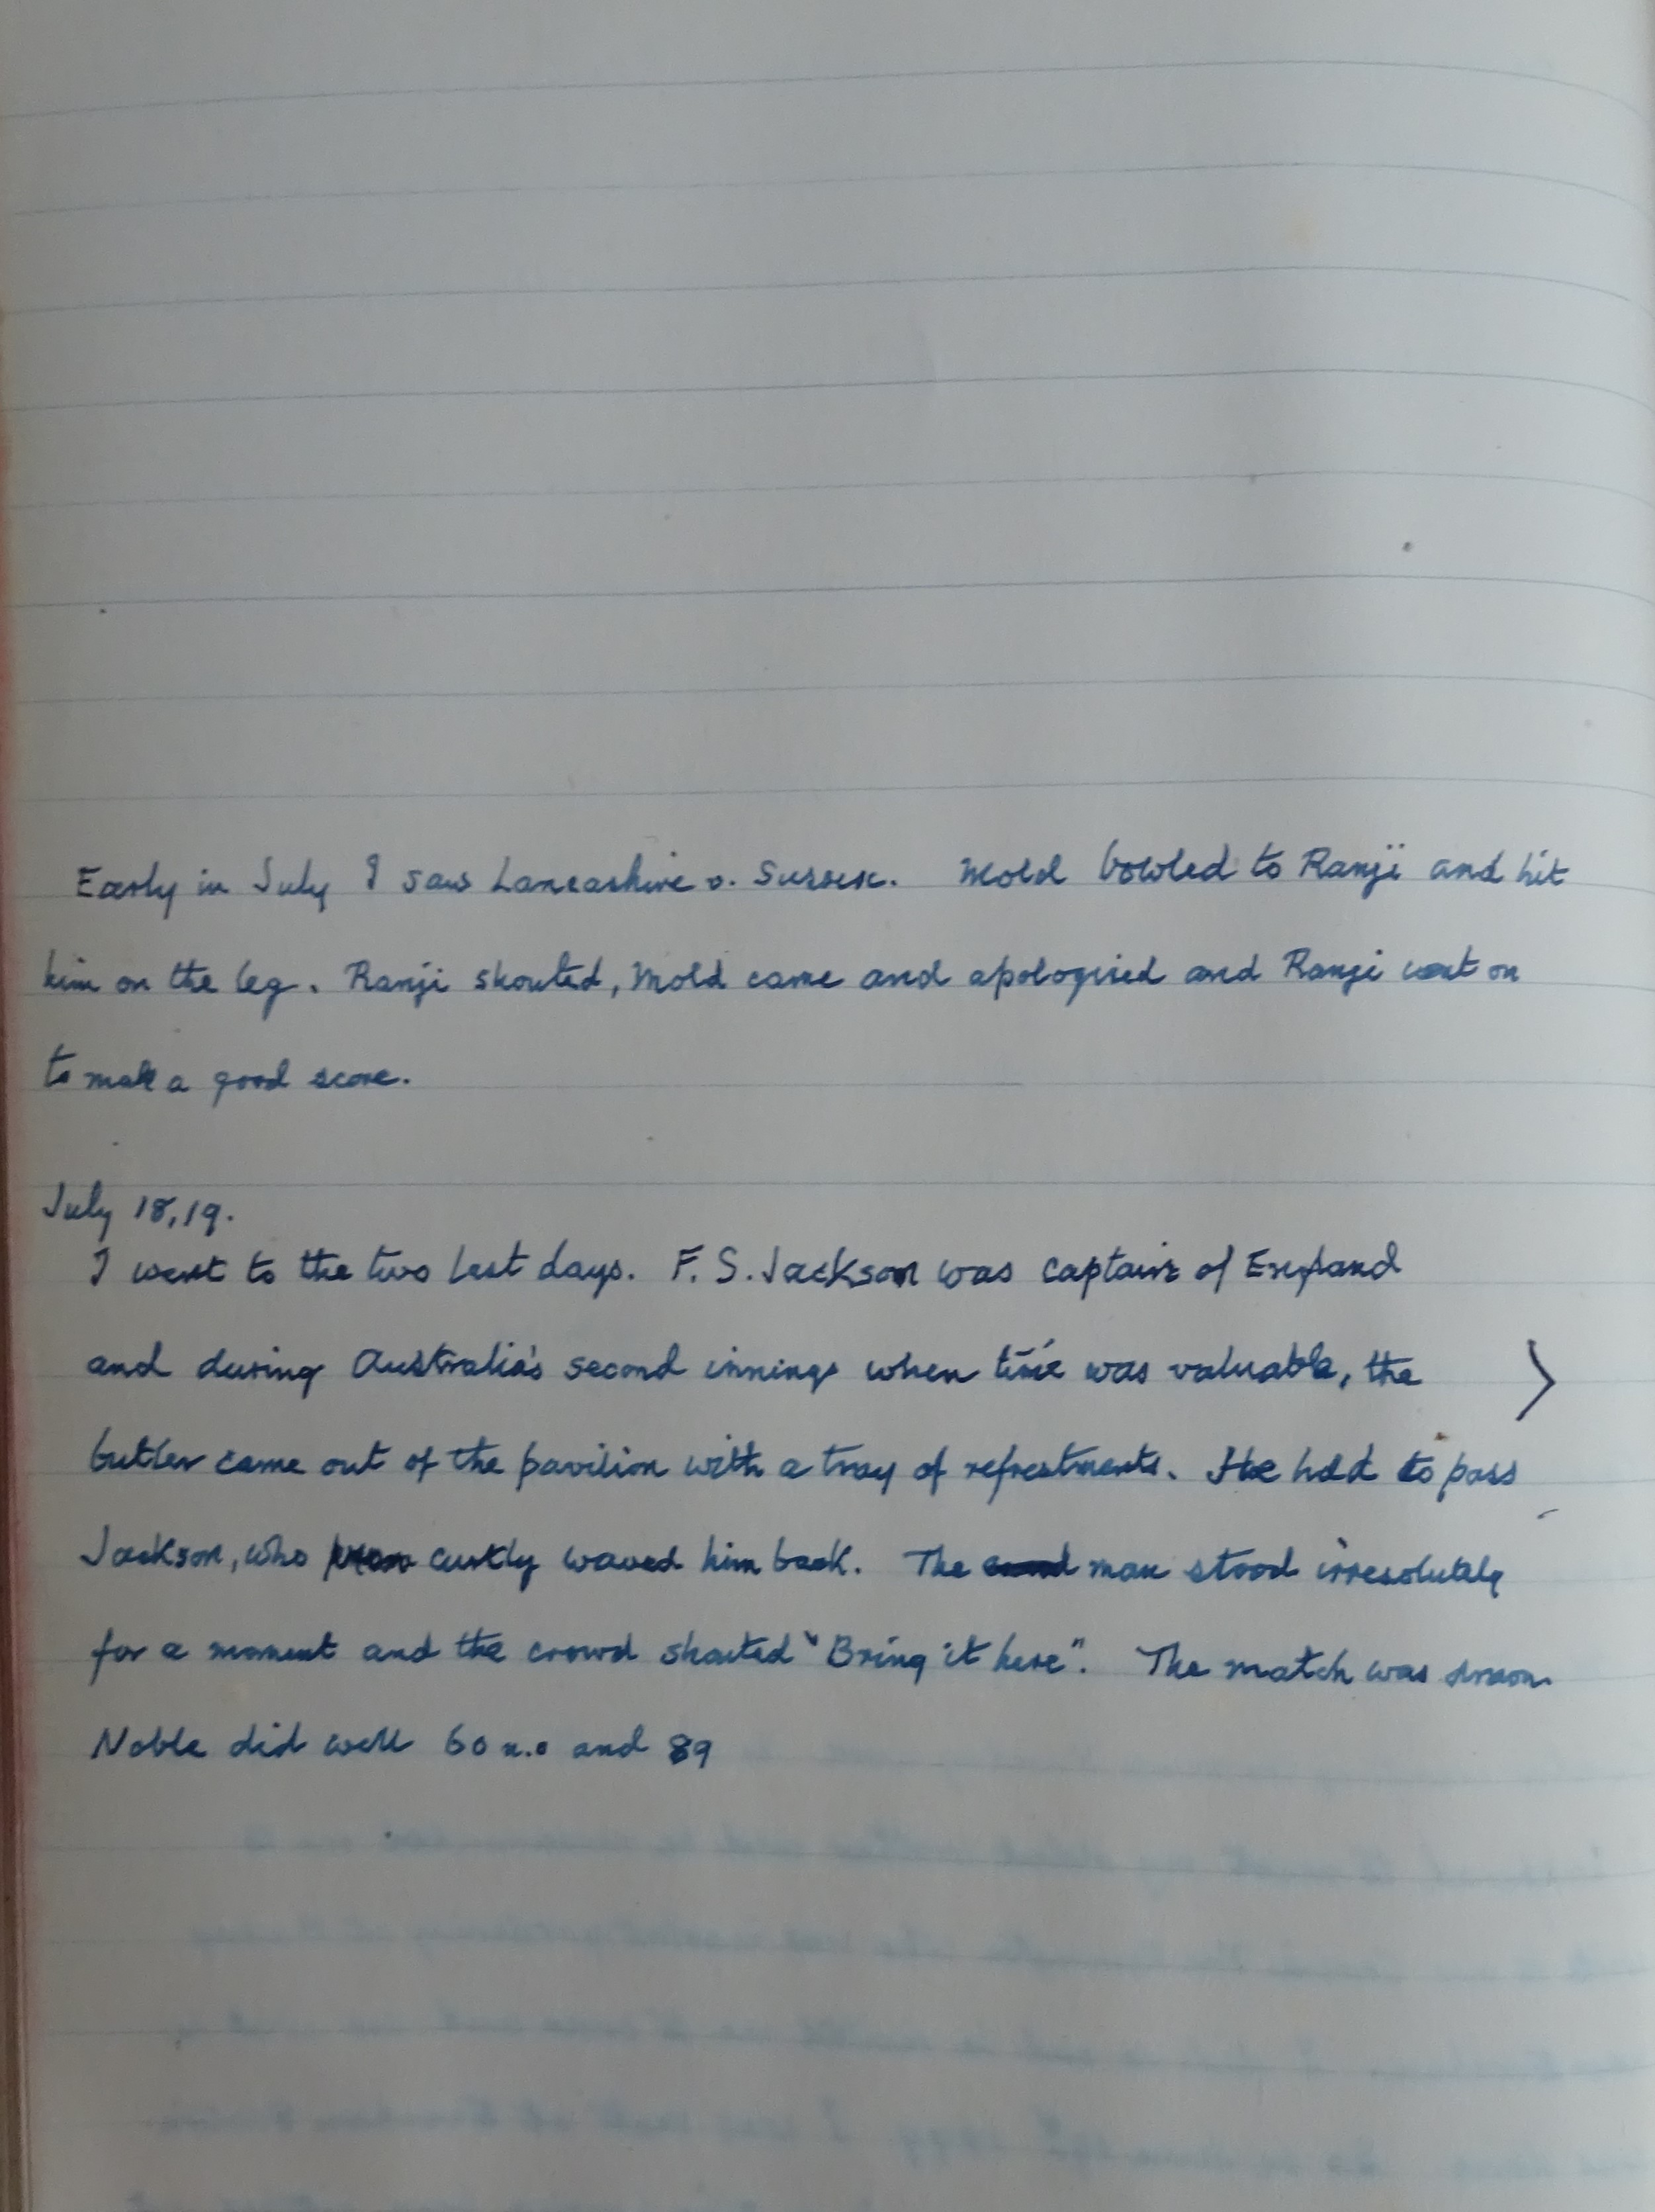 Early in July I saw Lancashire v. Sussex. Mold bowled to Ranji and hit
him on the leg. Ranji shouted, Mold came and apologised and Ranji went on
to make a good score.
July 18, 19.
I went to the two last days. F. S. Jackson was captain of England
and during Australia's second innings when time was valuable, the
butler came out of the pavilion with a tray of refreshments. He had to pass
Jackson, who curtly waved him back. The man stood irresolutely
for a moment and the crowd shouted "Bring it here". The match was drawn.
Noble did well 60 n.o and 89